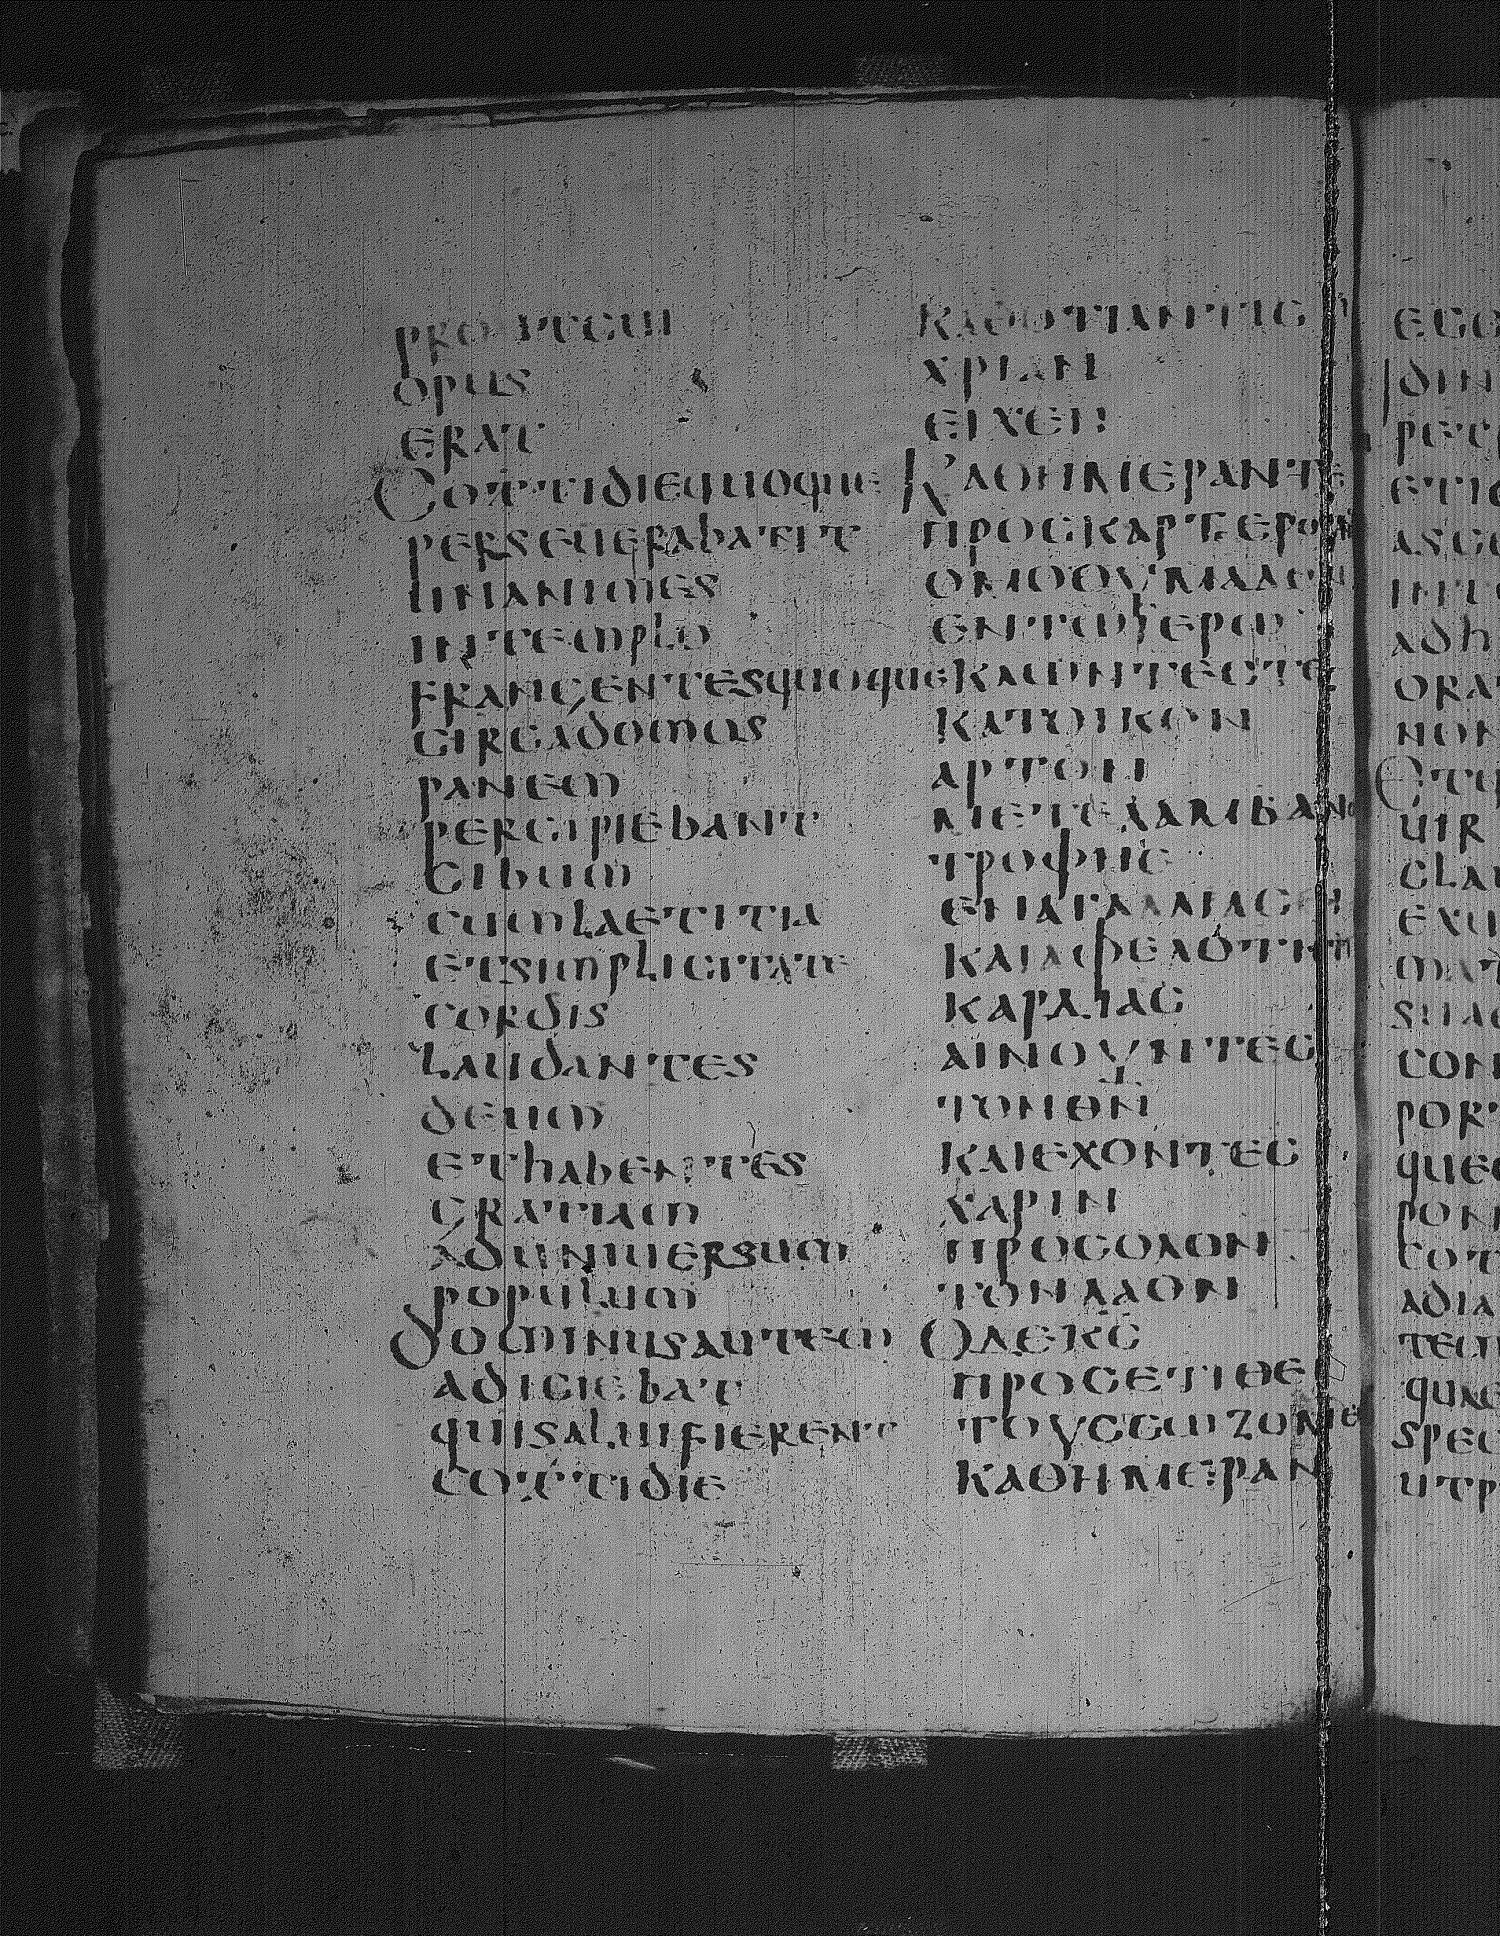 PROUTCUI
OPUS
ERAT
COTTIDIEQUOQUE
PERSEUERABANT
UNANIMES
INTEMPLO
FRANGENTESQUOQUE
CIRCADOMUS
PANEM
PERCIPIEBANT
CIBUM
CUMLAETITIA
ETSIMPLICITATE
CORDIS
LAUDANTES
DEUM
ETHABENTES
GRATIAM
ADUNIUERSUM
POPULUM
DOMINUSAUTEM
ADICIEBAT
QUISALUIFIERENT
COTTIDIE
ΚΑΘΟΤΙΑΝΤΙΣ
ΧΡΙΑΝ
ΕΙΧΕΝ
ΚΑΘΗΜΕΡΑΝΤΕ
ΟΜΟΘΥΜΑΔΟΝ
ΕΝΤΩΙΕΡΩ
ΚΛΩΝΤΕΣΤΕ
ΚΑΤΟΙΚΟΝ
ΑΡΤΟΝ
ΜΕΤΕΛΑΜΒΑΝΟ
ΤΡΟΦΗΣ
ΕΝΑΓΑΛΛΙΑΣΕΙ
ΚΑΙΑΦΕΛΟΤΗΤΙ
ΚΑΡΔΙΑΣ
ΑΙΝΟΥΝΤΕΣ
ΤΟΝΘΝ
ΚΑΙΕΧΟΝΤΕΣ
ΧΑΡΙΝ
ΠΡΟΣΟΛΟΝ
ΤΟΝΛΑΟΝ
ΟΔΕΚΣ
ΠΡΟΣΕΤΙΘΕ
ΤΟΥΣΣΩΖΟΜΕ
ΚΑΘΗΜΕΡΑΝ